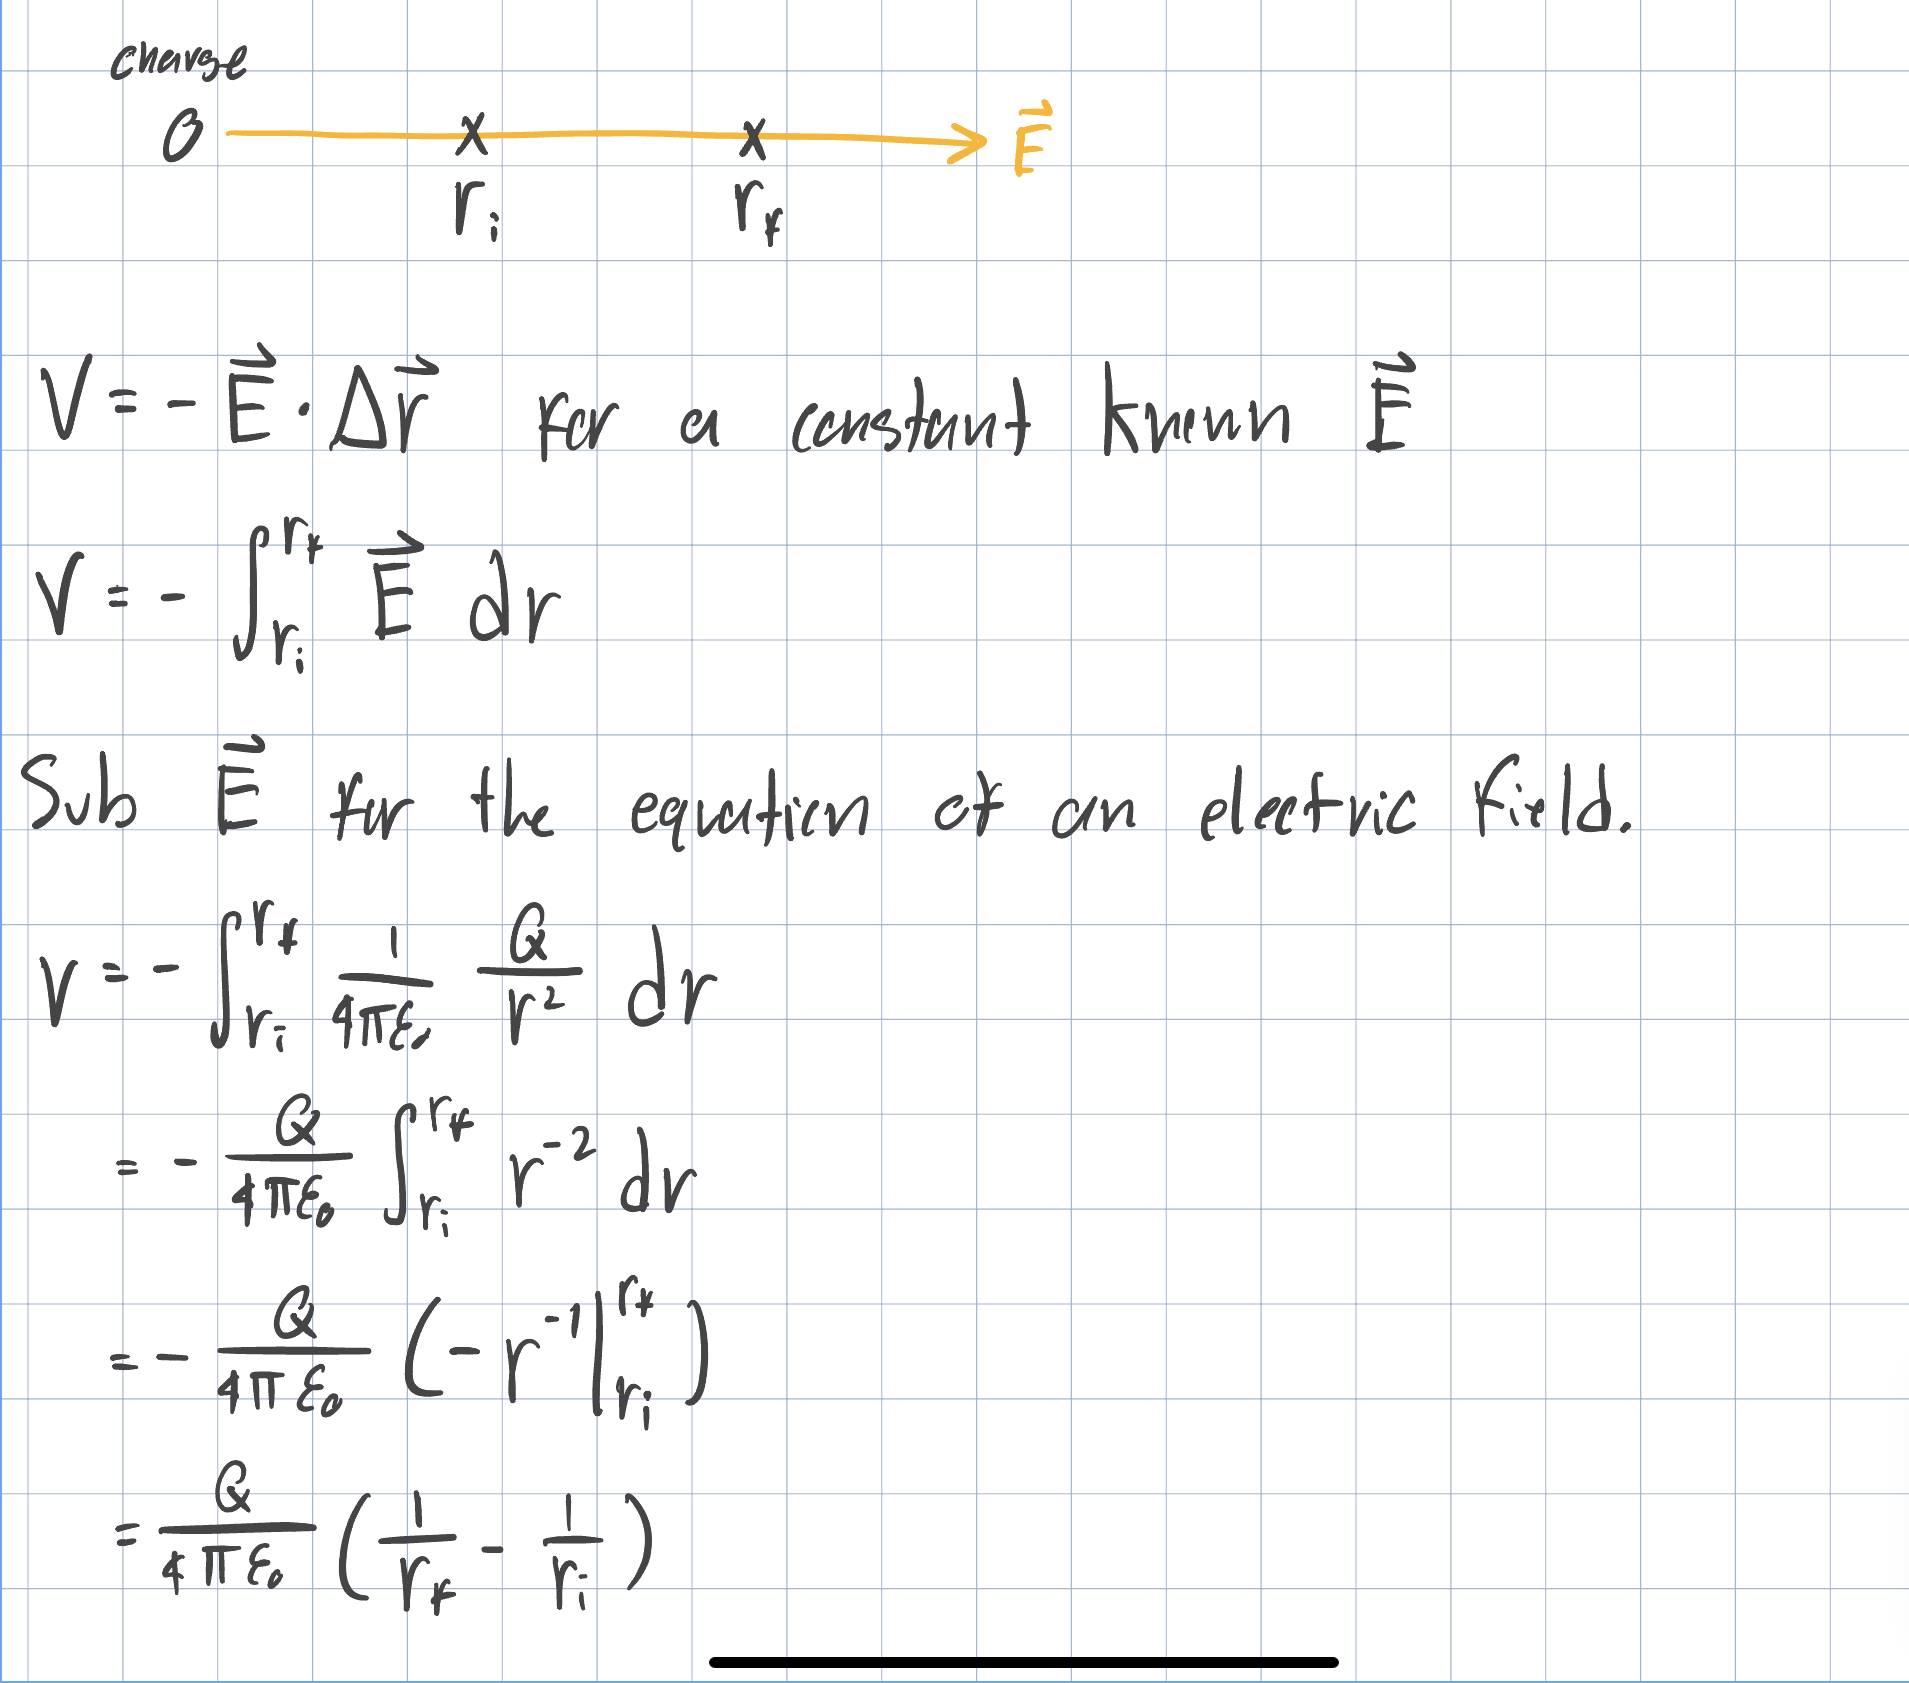 charge
O r_i r_f \vec{E}
V = - \vec{E} \cdot \Delta\vec{r} for a constant known \vec{E}
V = - \int_{r_i}^{r_f} \vec{E} dr
Sub \vec{E} for the equation of an electric field.
V = - \int_{r_i}^{r_f} \frac{1}{4\pi\varepsilon_0} \frac{Q}{r^2} dr
= - \frac{Q}{4\pi\varepsilon_0} \int_{r_i}^{r_f} r^{-2} dr
= - \frac{Q}{4\pi\varepsilon_0} \left( -r^{-1} \Big|_{r_i}^{r_f} \right)
= \frac{Q}{4\pi\varepsilon_0} \left( \frac{1}{r_f} - \frac{1}{r_i} \right)